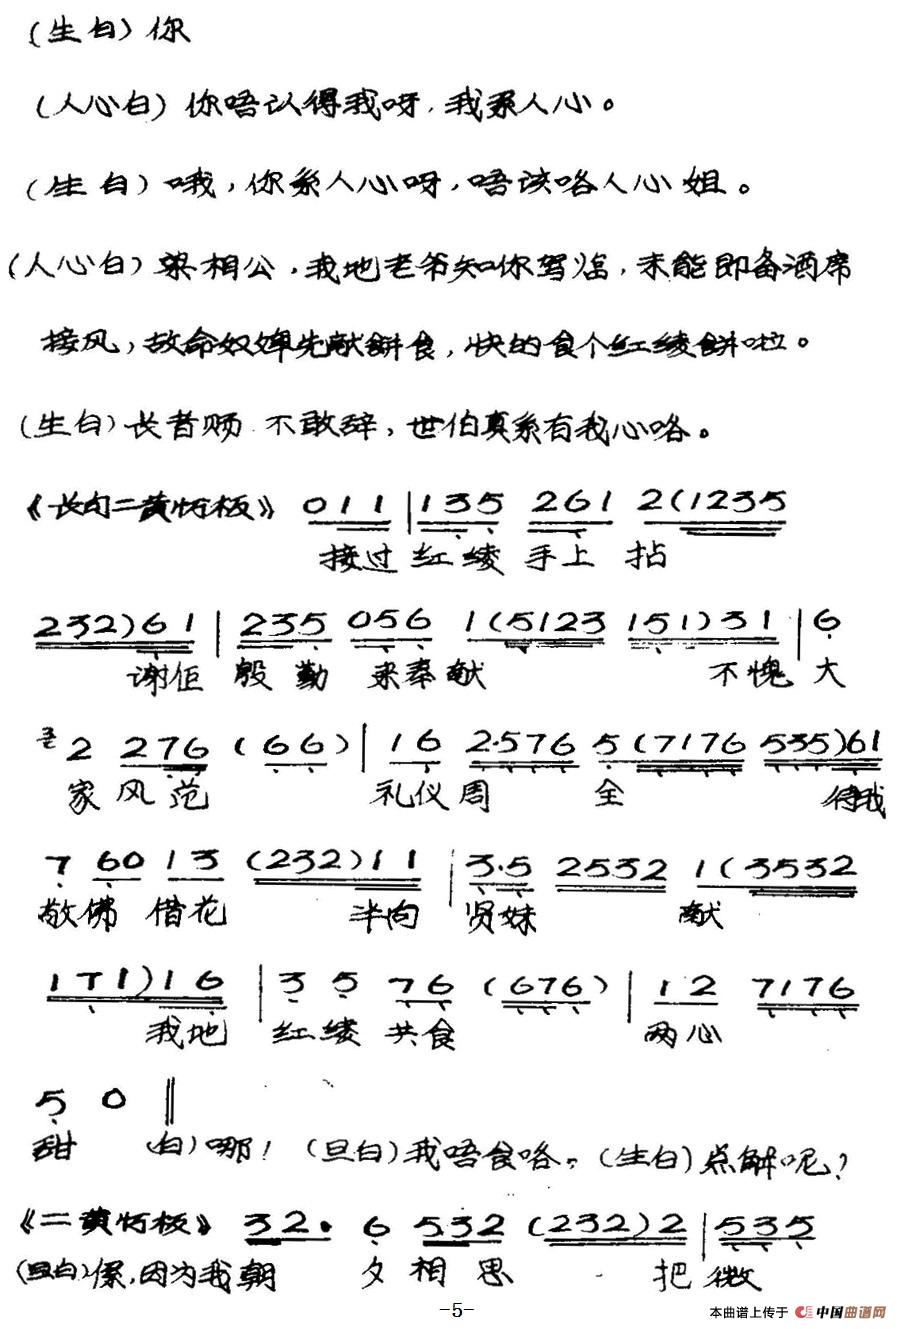 (生白)你
(人心白)你唔认得我呀,我系人心。
(生白)哦,你系人心呀,唔该咯人心姐。
(人心白)梁相公,我地老爷知你驾临,未能即备酒席
接风,故命奴婢先献餅食,快的食个红绫餅啦。
(生白)长者赐 不敢辞,世伯真系有我心咯。
《长句二黄板》 0 1 1 | 1 3 5 2 6 1 2 (1 2 3 5
接过 红绫 手上 拈
2 3 2) 6 1 | 2 3 5 0 5 6 1 (5 1 2 3 1 5 1) 3 1 | 6
谢佢 殷勤 来奉献 不愧 大
2 2 7 6 (6 6) | 1 6 2·5 7 6 5 (7 1 7 6 5 3 5) 6 1
家 风 范 礼仪 周 全 待我
7 6 0 1 3 (2 3 2) 1 1 | 3·5 2 5 3 2 1 (3 5 3 2
敬佛 借花 半向 贤妹 献
1 7 1) 1 6 | 3 5 7 6 (6 7 6) | 1 2 7 1 7 6
我地 红绫 共食 两心
5 0 ‖
甜 (白)哪! (旦白)我唔食咯。(生白)点解呢?
《二黄板》 3 2· 6 5 3 2 (2 3 2) 2 | 5 3 5
(旦白)傫,因为我朝 夕 相 思 把 微
-5-
本曲谱上传于 中国曲谱网